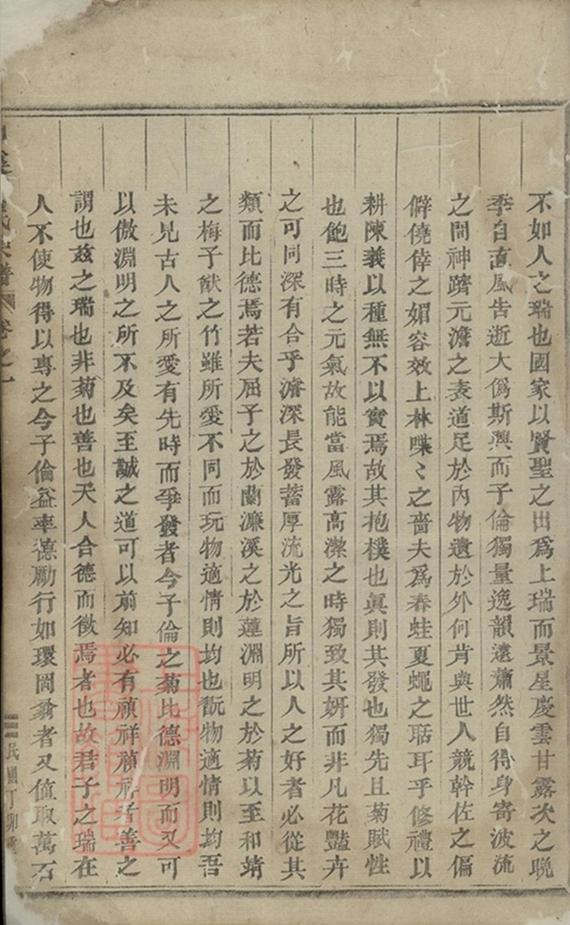 不如人之瑞也國家以賢聖之出爲上瑞而景星慶雲甘露次之晚
季自眞風告逝大僞斯興而子倫獨量逸韻遠蕭然自得身寄波流
之間神躋元澹之表道足於內物遺於外何肯與世人競幹佐之偏
僻僥倖之媚容效上林喋〻之嗇夫爲春蛙夏蠅之聒耳乎修禮以
耕陳義以種無不以實焉故其抱樸也眞則其發也獨先且菊賦性
也飽三時之元氣故能當風露高潔之時獨致其妍而非凡花豔卉
之可同深有合乎濬深長發蓄厚流光之旨所以人之好者必從其
類而比德焉若夫屈子之於蘭濂溪之於蓮淵明之於菊以至和靖
之梅子猷之竹雖所愛不同而玩物適情則均也翫物適情則均吾
未見古人之所愛有先時而爭發者今子倫之菊比德淵明而又可
以傲淵明之所不及矣至誠之道可以前知必有禎祥禎祥者善之
謂也茲之瑞也非菊也善也天人合德而徵焉者也故君子之瑞在
人不使物得以專之今子倫益率德勵行如環岡翁者又值取萬石
氏宗譜 卷之一
民國丁卯